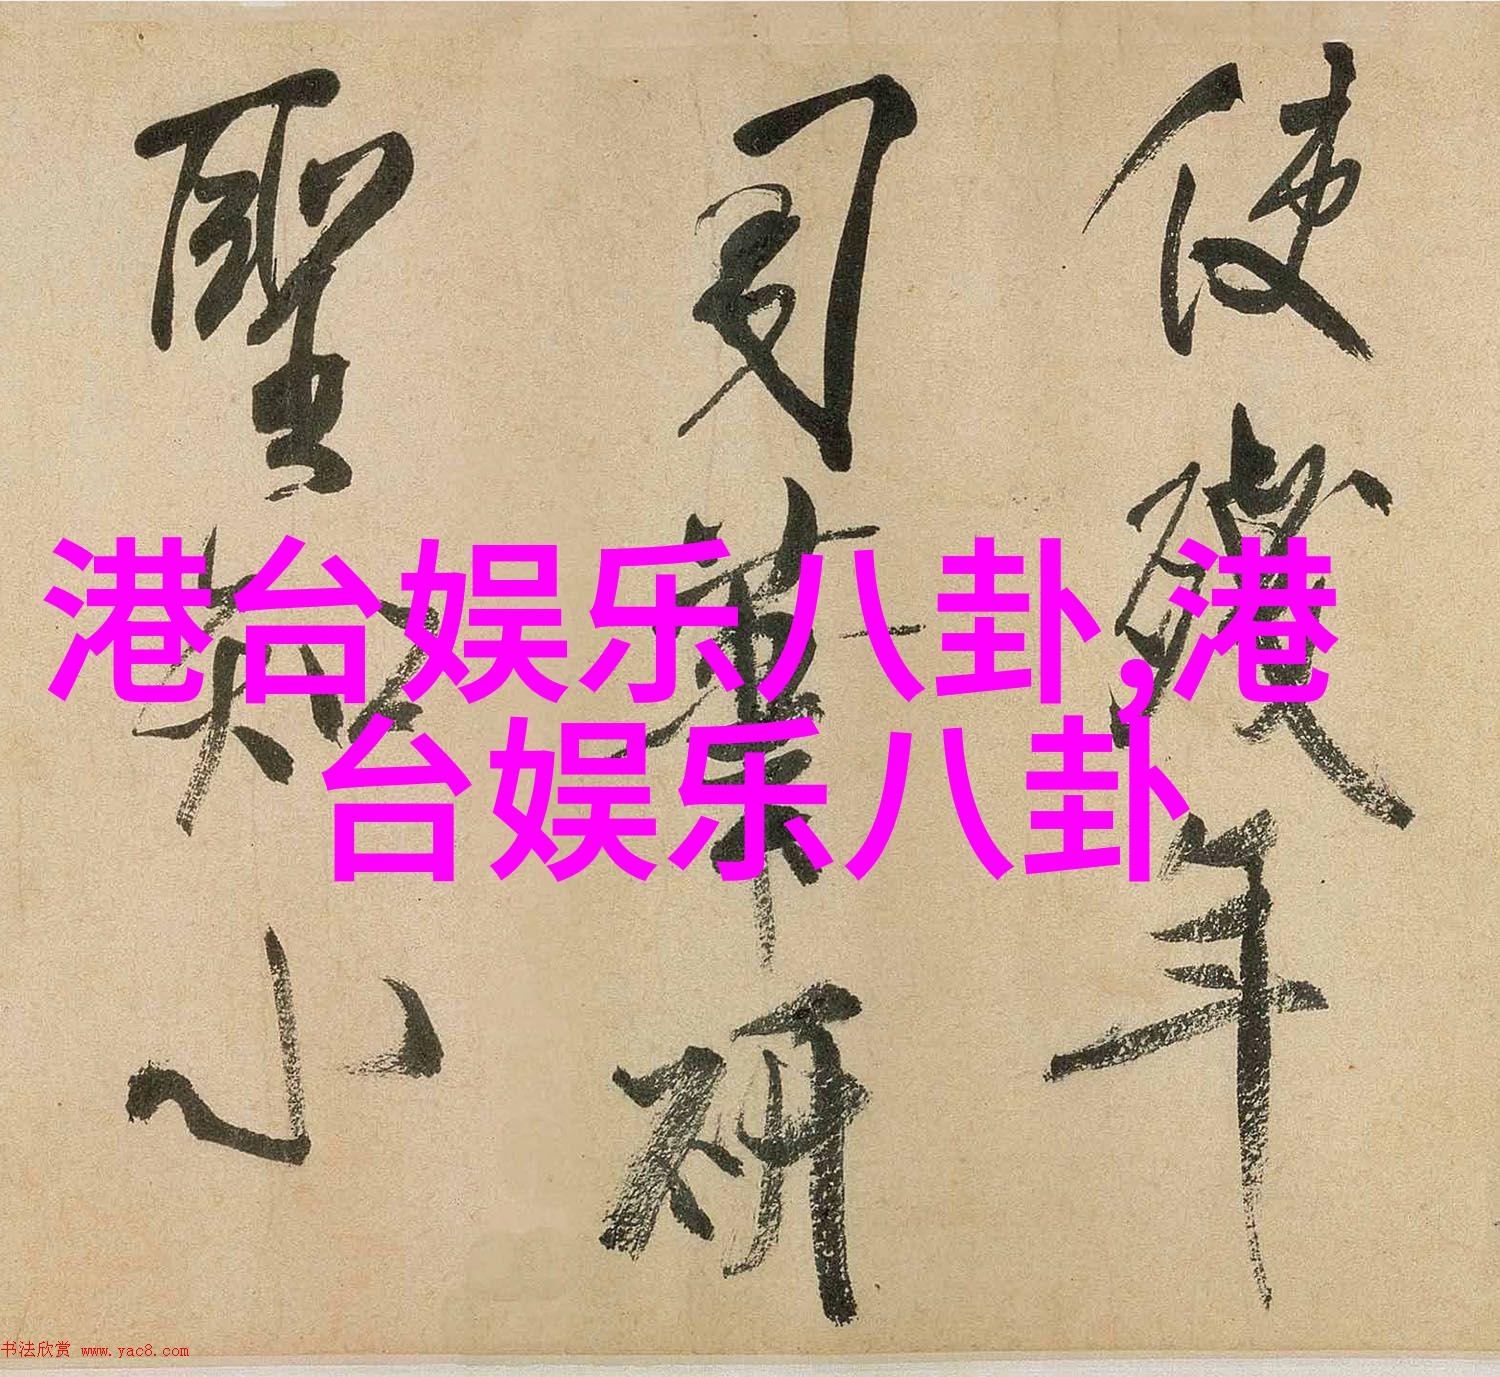 港台娱乐八卦,港
台娱乐八卦
使 年
研
聖知小
书法欣赏 www.yac8.com